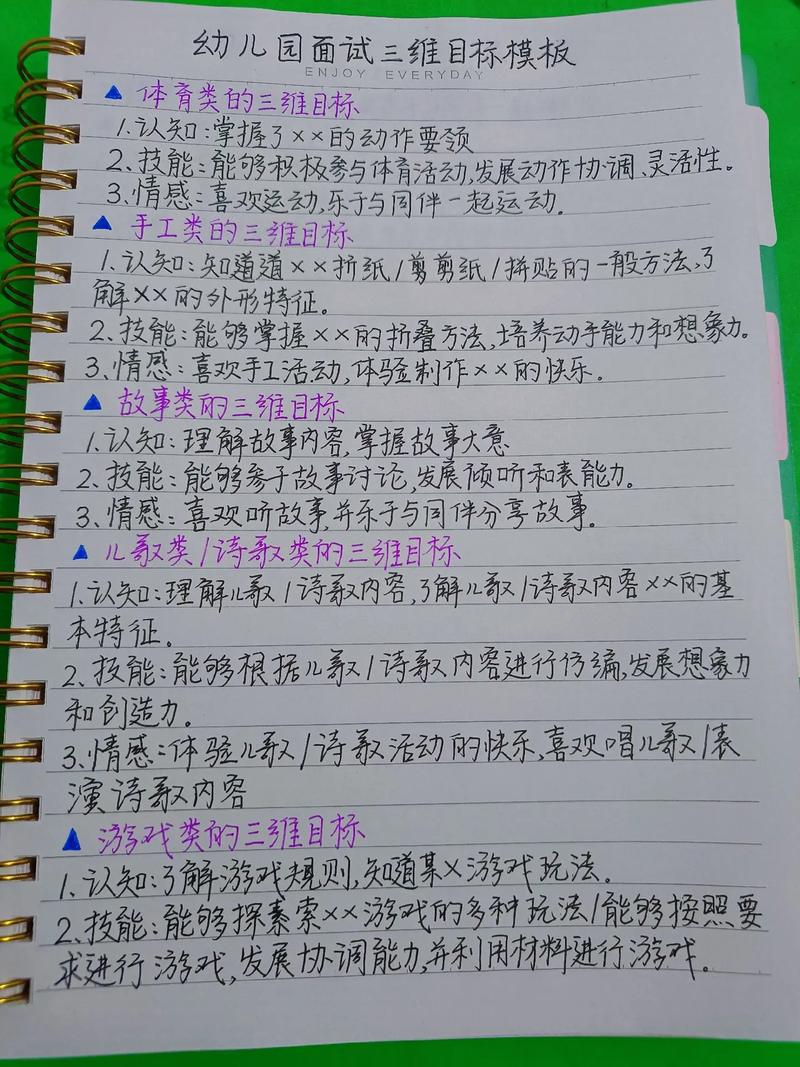 幼儿园面试三维目标模板
ENJOY EVERYDAY
▲ 体育类的三维目标
1.认知:掌握了××的动作要领
2.技能:能够积极参与体育活动,发展动作协调、灵活性。
3.情感:喜欢运动,乐于与同伴一起运动。
▲ 手工类的三维目标
1.认知:知道道××折纸/剪剪纸/拼贴的一般方法,了
解××的外形特征。
2.技能:能够掌握××的折叠方法,培养动手能力和想象力。
3.情感:喜欢手工活动,体验制作××的快乐。
▲ 故事类的三维目标
1.认知:理解故事内容,掌握故事大意
2.技能:能够参于故事讨论,发展倾听和表能力。
3.情感:喜欢听故事,并乐于与同伴分享故事。
▲ 儿歌类/诗歌类的三维目标
1.认知:理解儿歌/诗歌内容,了解儿歌/诗歌内容××的基
本特征。
2.技能:能够根据儿歌/诗歌内容进行仿编,发展想象力
和创造力。
3.情感:体验儿歌/诗歌活动的快乐,喜欢唱儿歌/表
演诗歌内容
▲ 游戏类的三维目标
1.认知:了解游戏规则,知道某×游戏玩法。
2.技能:能够探素索××游戏的多种玩法/能够按照要
求进行游戏,发展协调能力,并利用材料进行游戏。